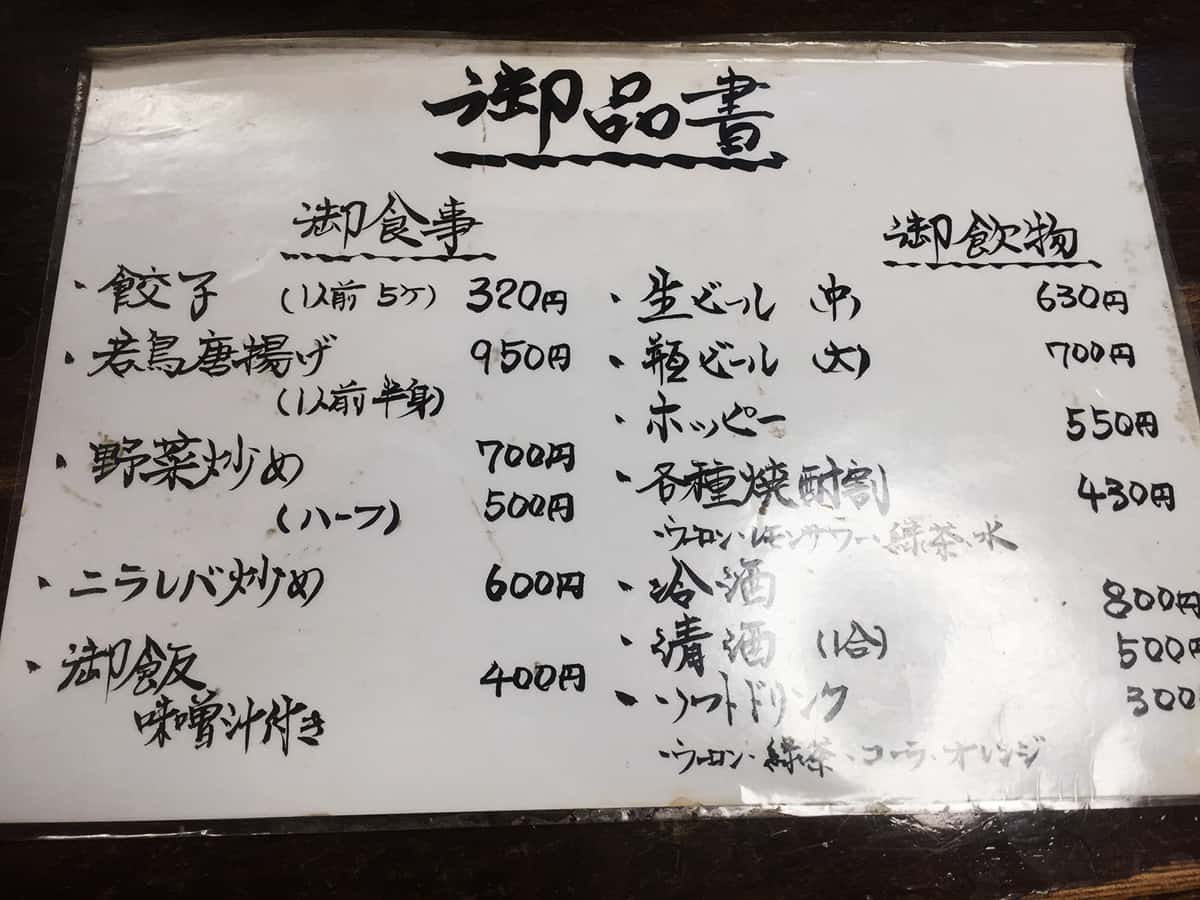 御品書
御食事
・餃子 (1人前 5ケ) 320円
・若鳥唐揚げ 950円
(1人前半身)
・野菜炒め 700円
(ハーフ) 500円
・ニラレバ炒め 600円
・御飯 400円
味噌汁付き
御飲物
・生ビール (中) 630円
・瓶ビール (大) 700円
・ホッピー 550円
・各種焼酎割 430円
・ウーロン・レモンサワー・緑茶・水
・冷酒 800円
・清酒 (1合) 500円
・ソフトドリンク 300
・ウーロン・緑茶・コーラ・オレンジ